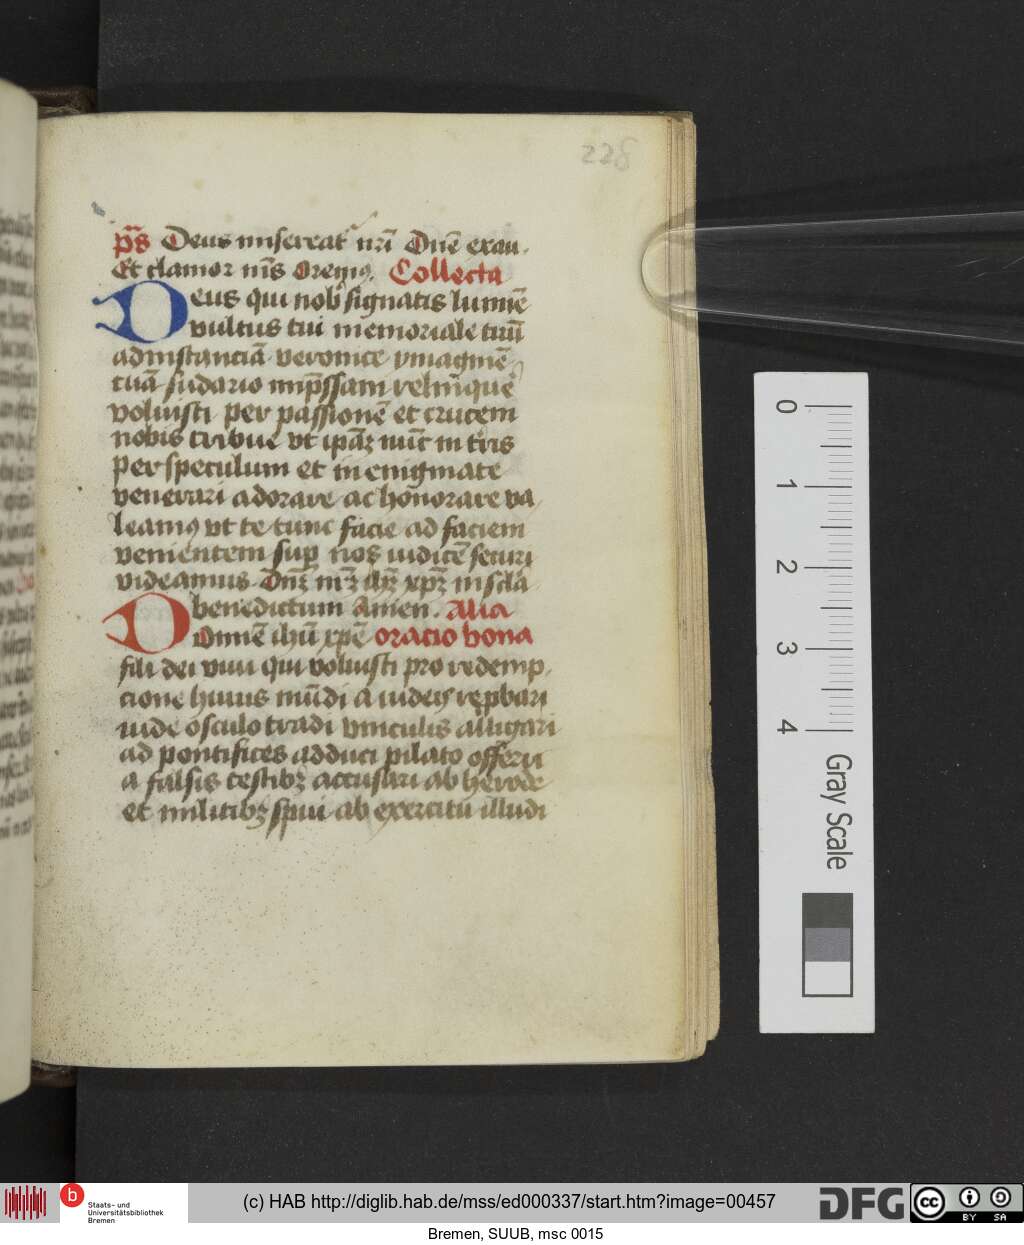 228
ps̄ Deus misereat̉ nr̄i Dn̄e exau.
Et clamor m̄s Oremꝰ. Collecta
Deus qui nob̄ signatis lumīe
vultus tui memoriale tuū
ad instanciā veronice ymagīe
tuā sudario imp̄ssam relinque
voluisti per passionē et crucem
nobis tribue vt ipāꝫ nūc in tr̄is
per speculum et in enigmate
venerari adorare ac honorare va
leamꝰ vt te tunc facie ad faciem
venientem suꝑ nos iudicē securi
videamus. Dn̄ꝫ nr̄ꝫ ih̄ꝫ xp̄ꝫ in scl̄a
benedictum Amen. Alia
Domīe ih̄ū xp̄e oracio bona
fili dei viui qui voluisti pro redemp
cione huius mūdi a iudeis rep̱bari
iude osculo tradi vinculis alligari
ad pontifices adduci pilato offerri
a falsis testibꝫ accusari ab herode
et militibꝫ spui ab exercitu illudi
0
1
2
3
4
Gray Scale
b Staats- und
Universitätsbibliothek
Bremen
(c) HAB http://diglib.hab.de/mss/ed000337/start.htm?image=00457
DFG
cc BY SA
Bremen, SUUB, msc 0015